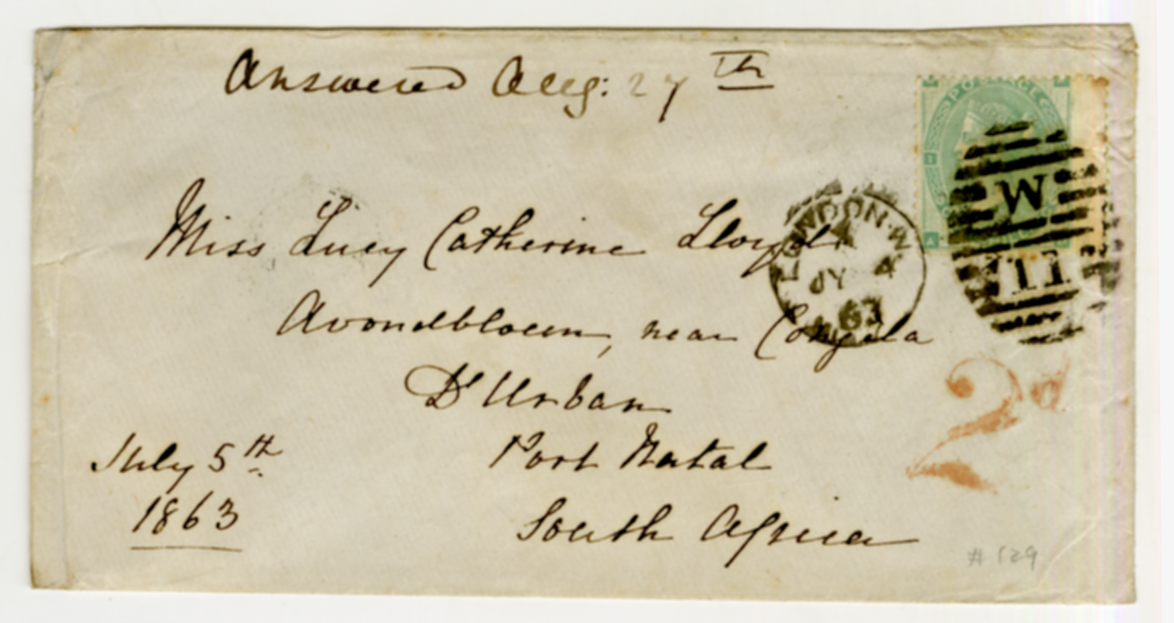 Answered Aug: 27th
POSTAGE
Miss Lucy Catherine Lloyd
LONDON·W
JY 4
63
W
11
Avondbloem, near Congela
D'Urban
2d
Port Natal
South Africa
July 5th
1863
#129